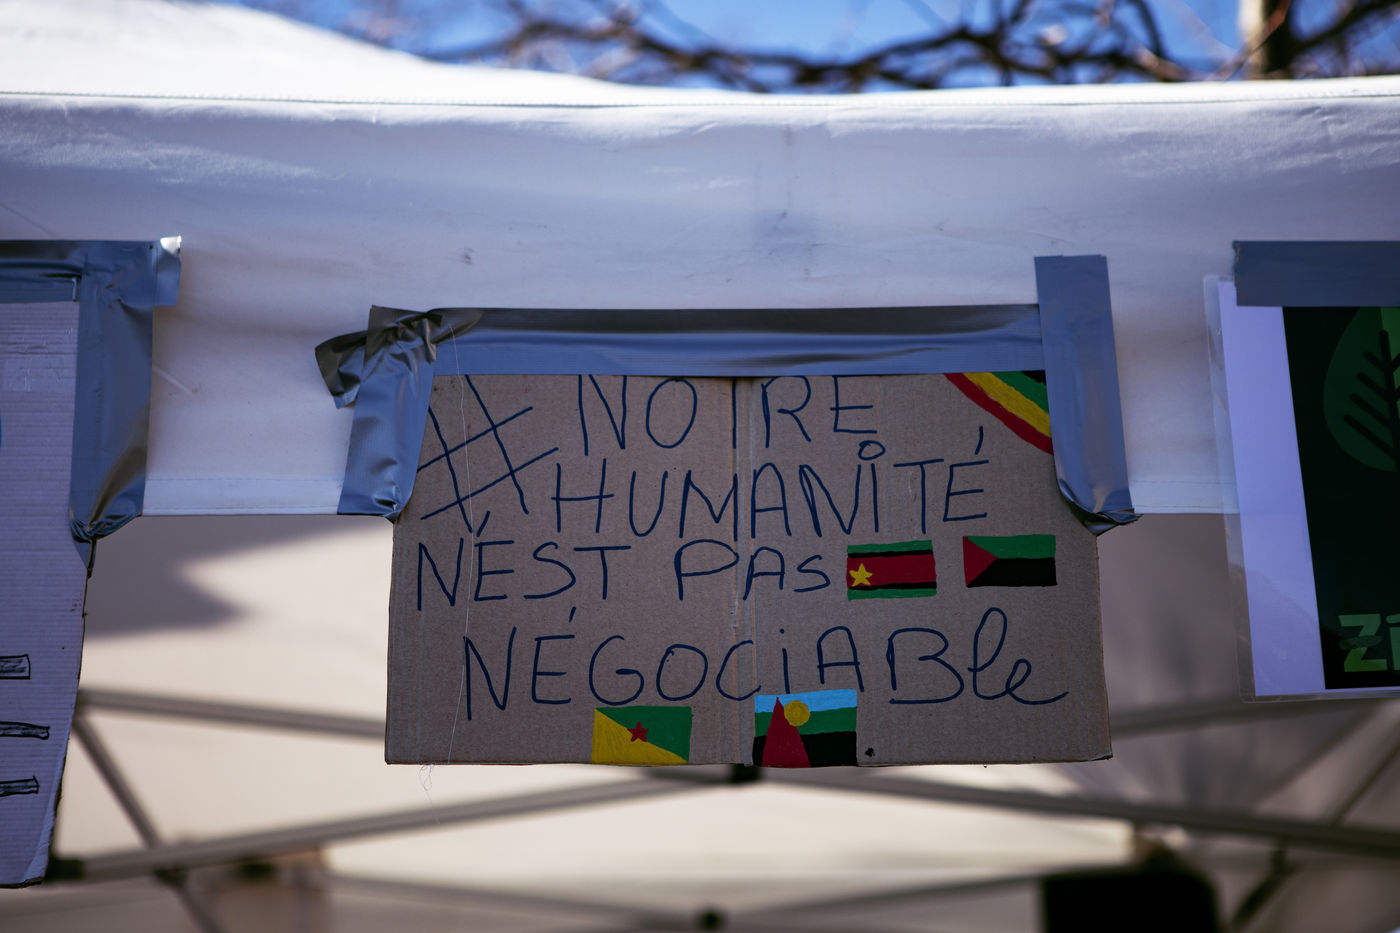 # NOTRE
HUMANITÉ
N'EST PAS
NÉGOCIABle